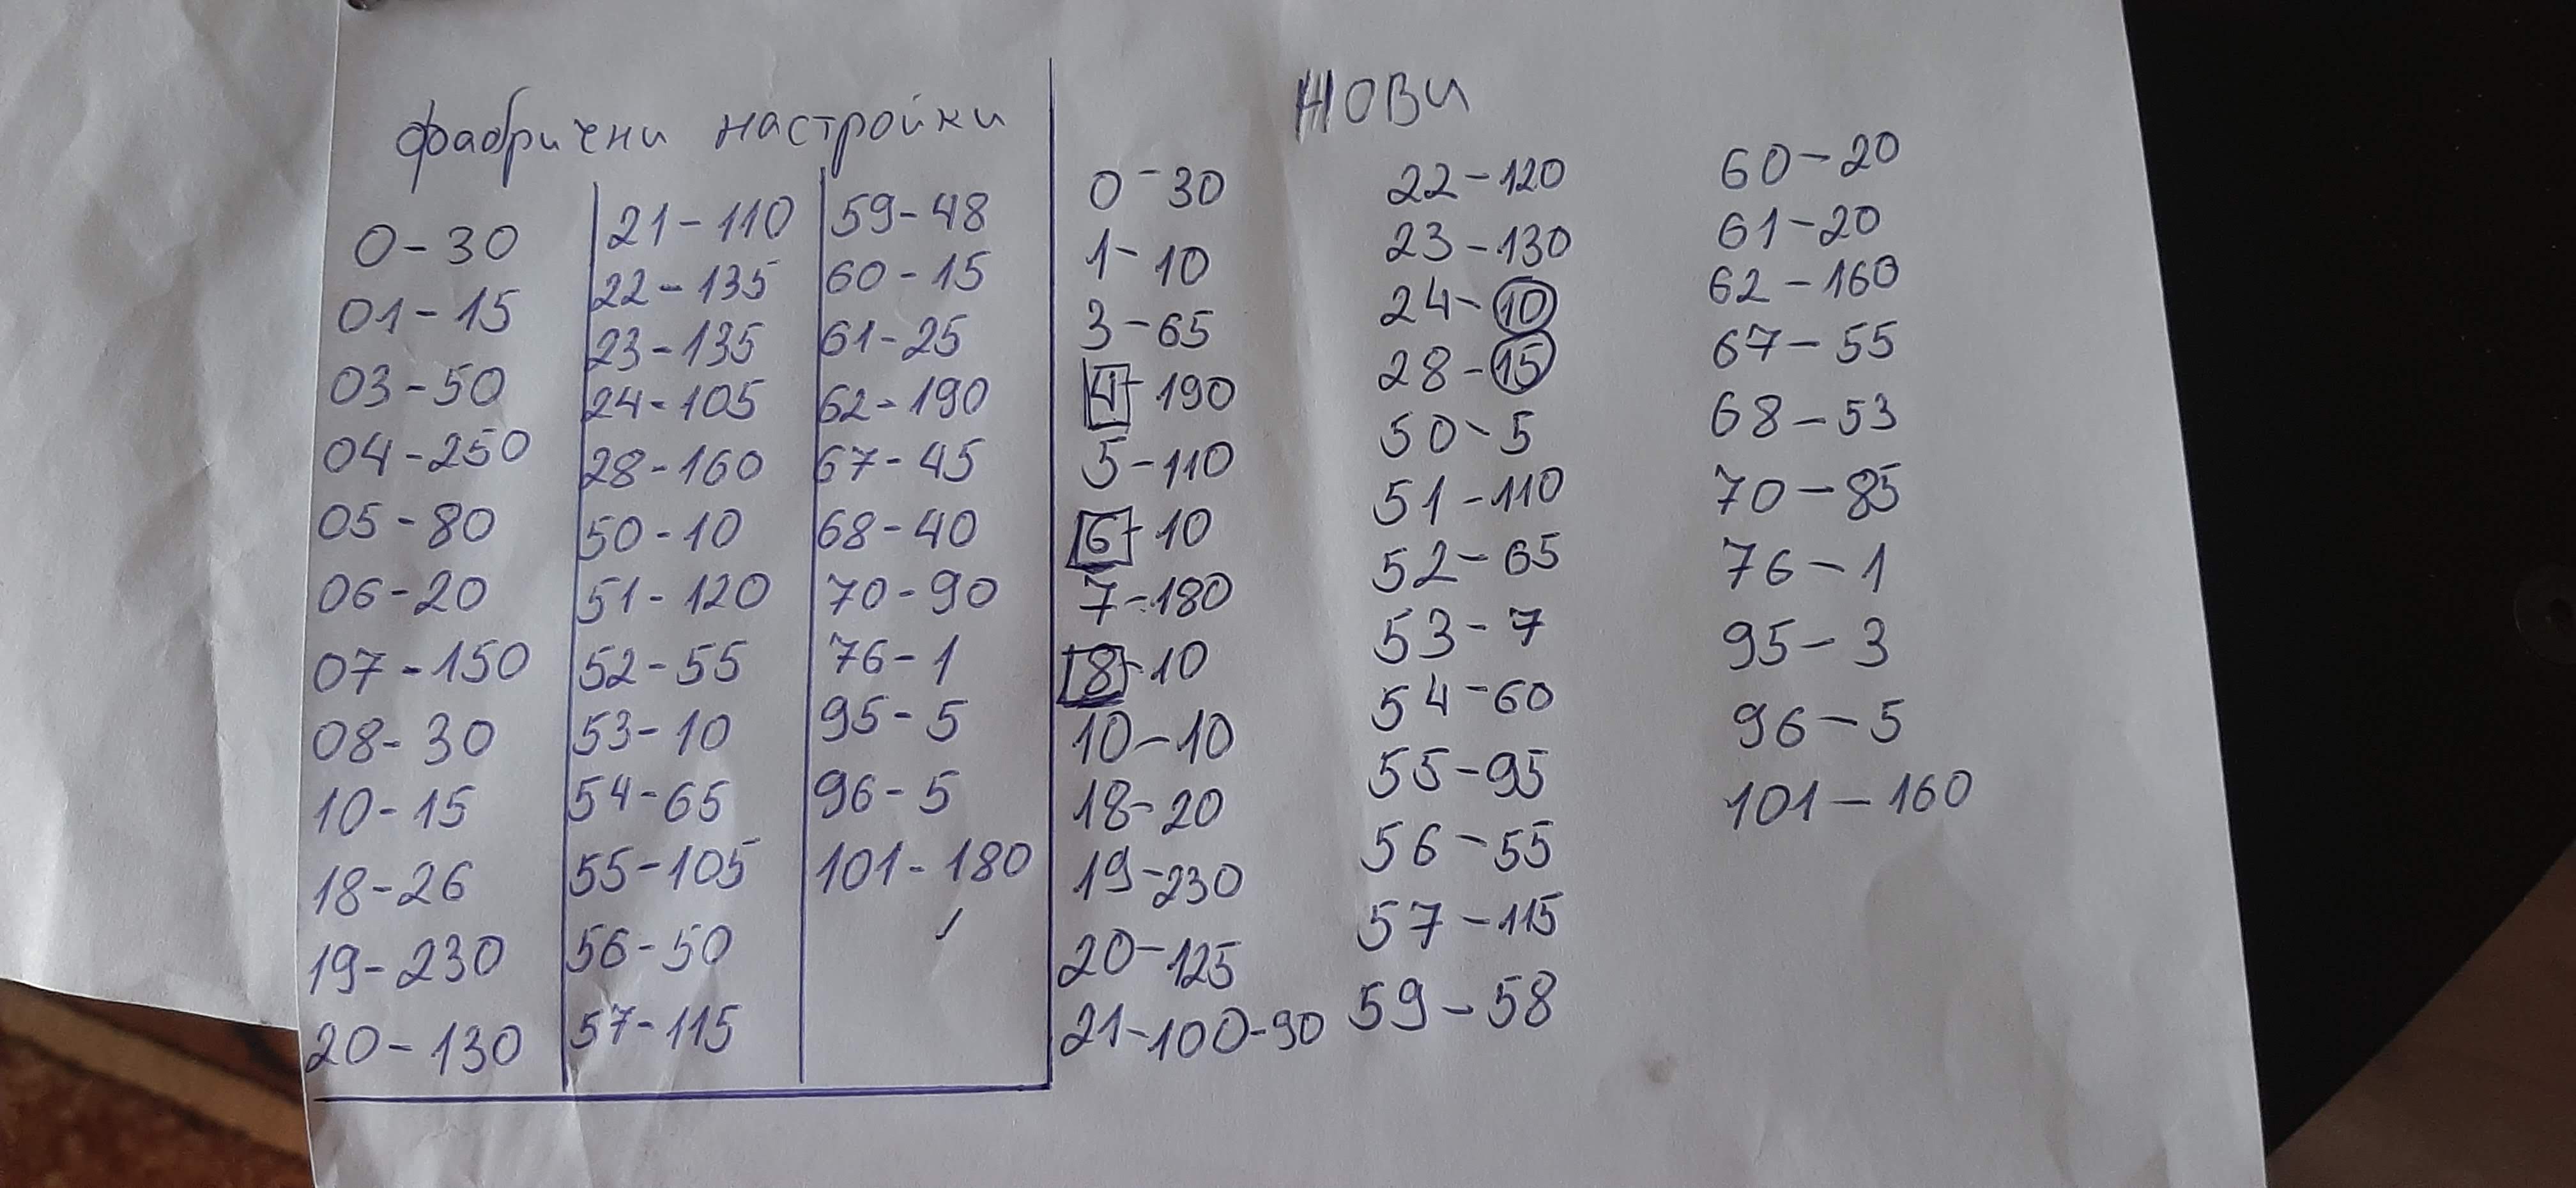 фабрични настройки
0-30
01-15
03-50
04-250
05-80
06-20
07-150
08-30
10-15
18-26
19-230
20-130
21-110
22-135
23-135
24-105
28-160
50-10
51-120
52-55
53-10
54-65
55-105
56-50
57-115
59-48
60-15
61-25
62-190
67-45
68-40
70-90
76-1
95-5
96-5
101-180
НОВИ
0-30
1-10
3-65
4-190
5-110
6-10
7-180
8-10
10-10
18-20
19-230
20-125
21-100-90
22-120
23-130
24-10
28-15
50-5
51-110
52-65
53-7
54-60
55-95
56-55
57-115
59-58
60-20
61-20
62-160
67-55
68-53
70-85
76-1
95-3
96-5
101-160